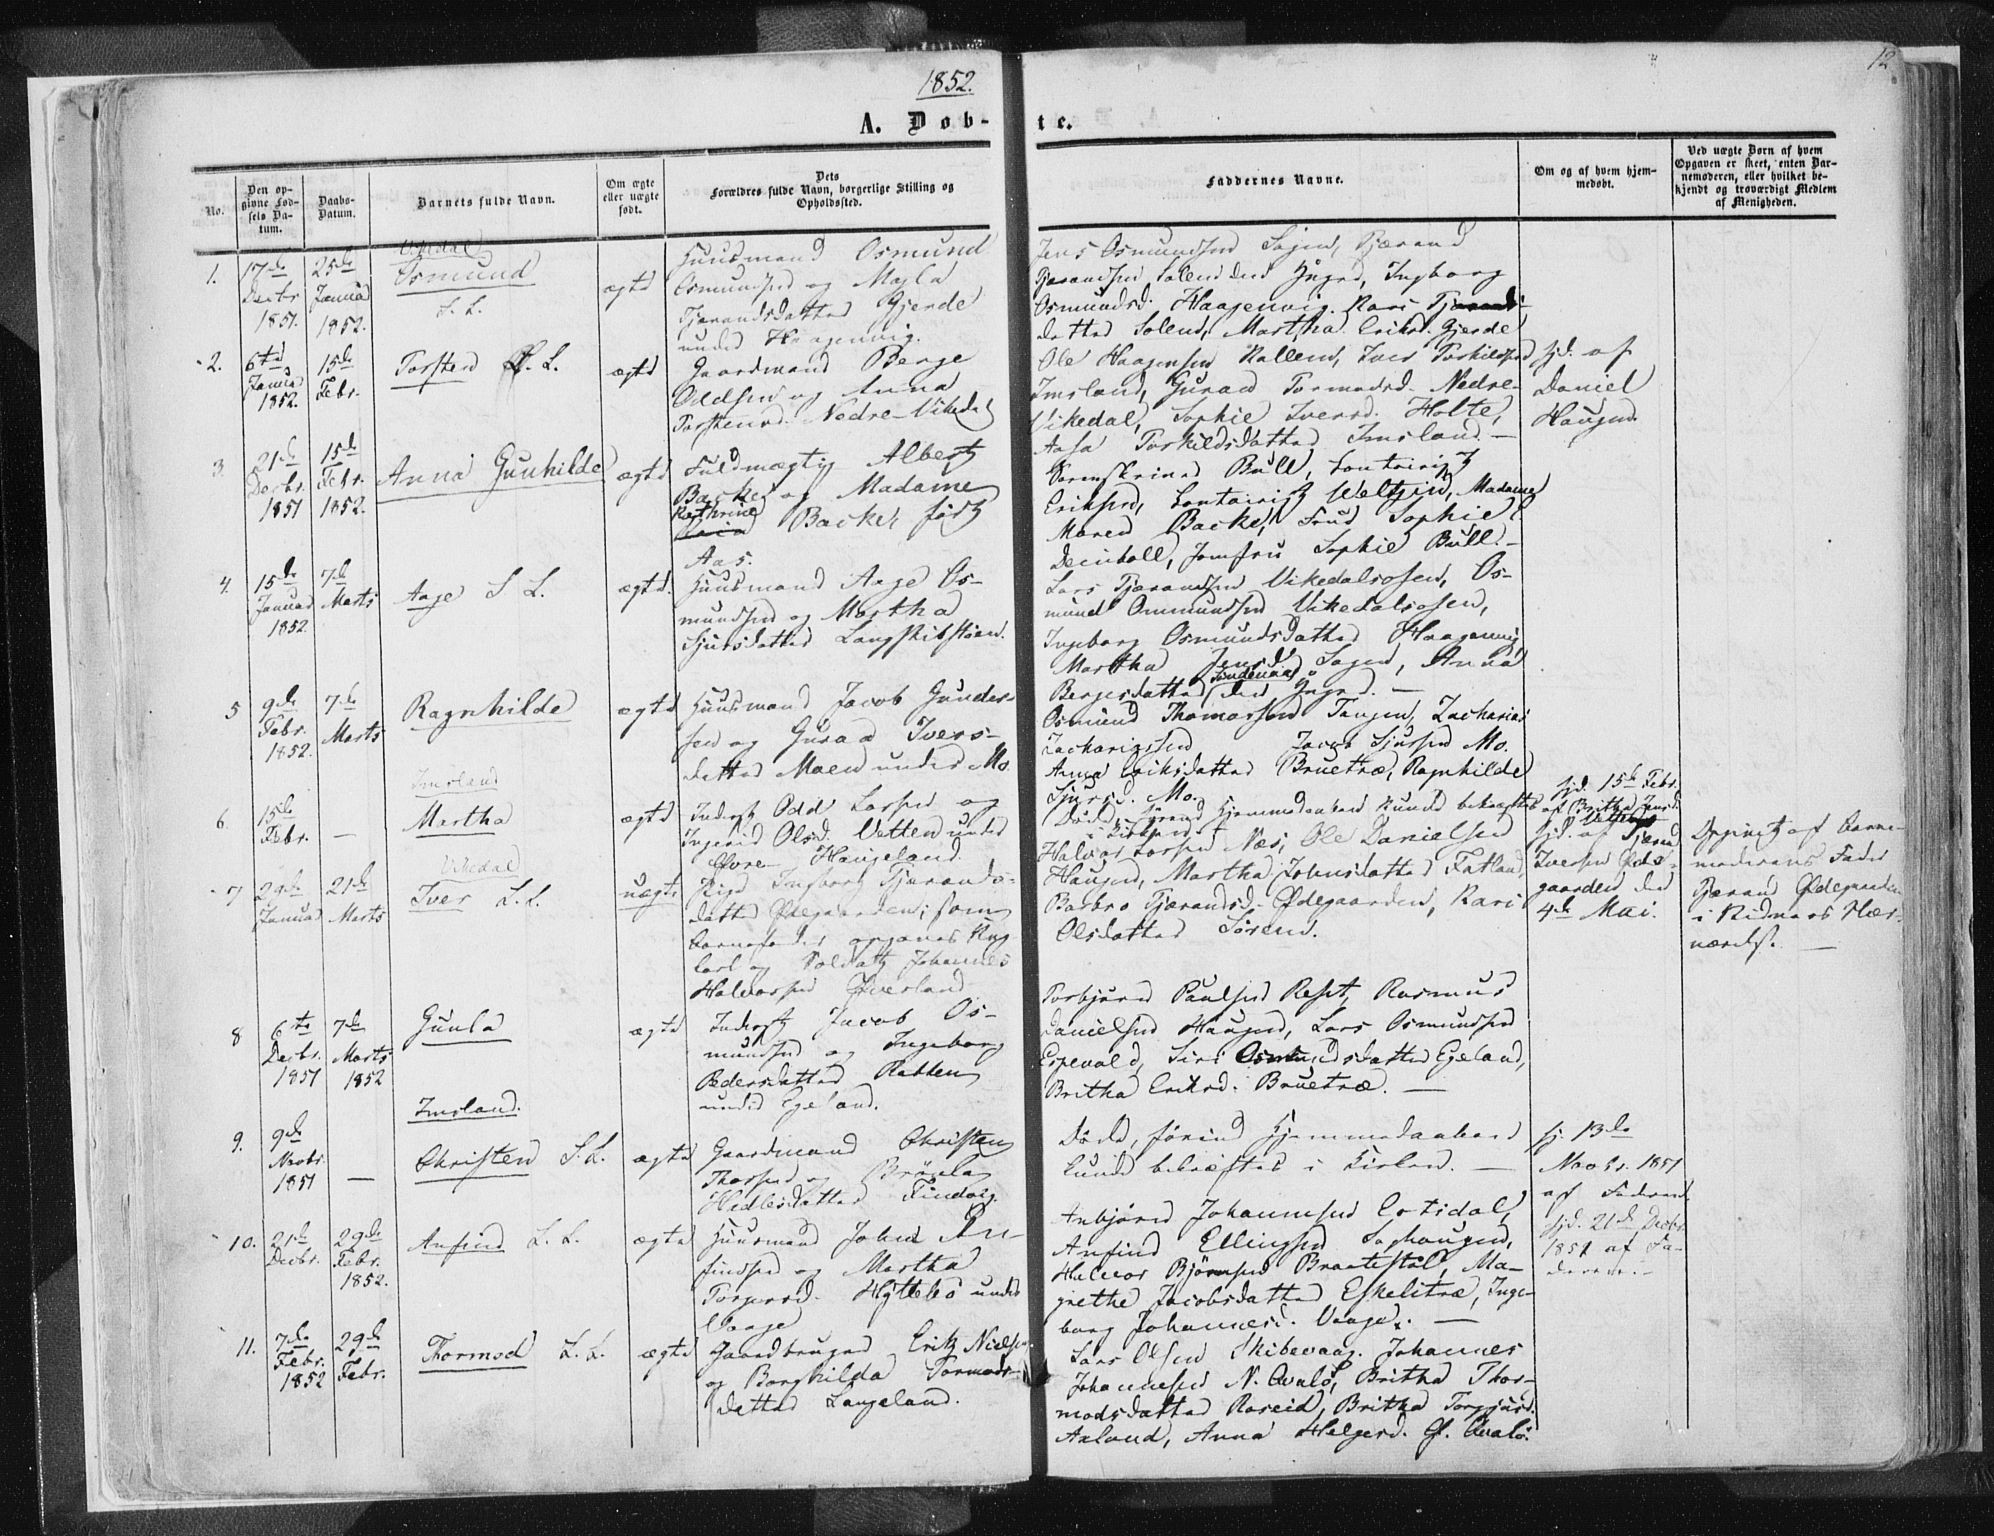 1852.
12
A. Døb-
te.
No.
Den op-
givne Fød-
sels Da-
tum.
Daabs-
Datum.
Barnets fulde Navn.
Om ægte
eller uægte
født.
Dets
Forældres fulde Navn, borgerlige Stilling og
Opholdssted.
Faddernes Navne.
Om og af hvem hjem-
medøbt.
Ved uægte Børn af hvem
Opgaven er skeet, enten Bar-
nemoderen, eller hvilket be-
kjendt og troværdigt Medlem
af Menigheden.
Vikedal
1.
17de
Decbr
1851.
25de
Januar
1852.
Osmund
ægte
Huusmand Osmund
Osmundsen og Magla
Tjerandsdatter Gjerde
under Haagenvig.
Jens Osmundsen Sagen, Tjærand
Osmundsd. Haagenvig, Kari
datter Martha Eriksd. Gjerde
2.
6te
Januar
1852.
15de
Febr.
Torsten
ægte
Gaardmand Berge
Oddsen og Anna
Torstensd. Nedre-Vikedal
Ole Haagensen Kallem, Iver Torkildsen
Imsland, Guraa Tormodsd. Nedre-
Vikedal, Sophie Iversd. Holte,
Aasa Torkildsdatter Imsland. —
hjd. af
Daniel
Haugen.
3.
21de
Decbr.
1851
15de
Febr.
1852.
Anna Gunhilde
ægte
Fuldmægtig Albert
Backer og Madame
Kathrine
Backer, født
Aas.
Sorenskriver Bull,
Madame
Maren Backer, Frue Sophie
Deinboll, Jomfru Sophie Bull. —
4.
15de
Januar
1852
7de
Marts
Aage
ægte.
Huusmand Aage Os-
mundsen og Martha
Sjursdatter
Lars Tjærandsen Vikedalsosen, Os-
mund Ommundsen Vikedalsosen,
Ingeborg Osmundsdatter Haagenvig,
Martha Jensd. Sagen, Anna
Bergesdatter
5
9de
Febr.
1852.
7de
Marts
Ragnhilde
ægte
Huusmand Jacob Gunder-
sen og Guraa Ivers-
datter Moen under Mo.
Osmund Thomassen Tangen, Zacharias
Zachariassen Jacob Sjursen Mo.
Anna Eriksdatter Bruetræ, Ragnhilde
Sjursd. Mo.
Imsland
6
15de
Febr.
—
Martha
ægte
Inderst Odd Larsen og
Ingerid Olsd. Vetten under
Øvre-Haugeland.
Døde, forend Hjemmedaaben kunde bekræftes
i Kirken.
hjd. 15de Febr.
af Britha Jensd.
Vikedal
7
29de
Januar
21de
Marts
Iver
uægte
Pige Ingborg Tjærands-
datter Ødegaarden; som
barnefader opgaves Ung-
karl og Soldat Johannes
Halvorsen Øverland
Halvor Larsen Næs, Ole Danielsen
Haugen, Martha Johnsdatter Fatland,
Barbro Tjærandsd. Ødegaarden, Kari
Olsdatter Søren.
hjd. af Tjærand
Iversen Øde-
gaarden den
4de Mai.
Opgivet af Barne-
moderens Fader
Tjærand Ødegaarden
i Vidners Nær-
værelse. —
8
6te
Decbr.
1851
7de
Marts
1852
Gunla
ægte
Inderst Jacob Os-
mundsen og Ingeborg
Pedersdatter Rabben
under Egeland.
Torbjørn Paulsen Røset, Rasmus
Danielsen Haugen, Lars Osmundsen
Espevold, Siri Osmundsdatter Egeland,
Britha Eriksd. Bruetræ. —
Imsland.
9.
9de
Novbr.
1851
—
Christen
ægte
Gaardmand Christen
Thorsen og
Hedlesdatter Findvig.
Døde, førend Hjemmedaaben
kunde bekræftes i Kirken. —
hj. 13de
Novbr. 1851
af Faderen
10.
21de
Decbr.
29de
Febr.
1852.
Anfind
ægte
Huusmand John An-
findsen og Martha
Torgersd. Hyttebø under
Vaage
Anbjørn Johannesen
Anfind Ellingsen Saghaugen,
Halvor Bjørnsen Braatestøl, Ma-
grethe Jacobsdatter Eskelitræ, Inge-
borg Johannesd. Vaage. —
hjd. 21de Decbr.
1851 af Fa-
deren. —
11.
7de
Febr.
1852
29de
Febr.
Thormod
ægte
Gaardbruger Erik Nielsen
og Borghilda Tormods-
datter Langeland.
Lars Olsen Skibevaag, Johannes
Johannesen N. Qvaløe, Britha Thor-
modsdatter Røseid, Britha
Axland, Anna Helgesd.